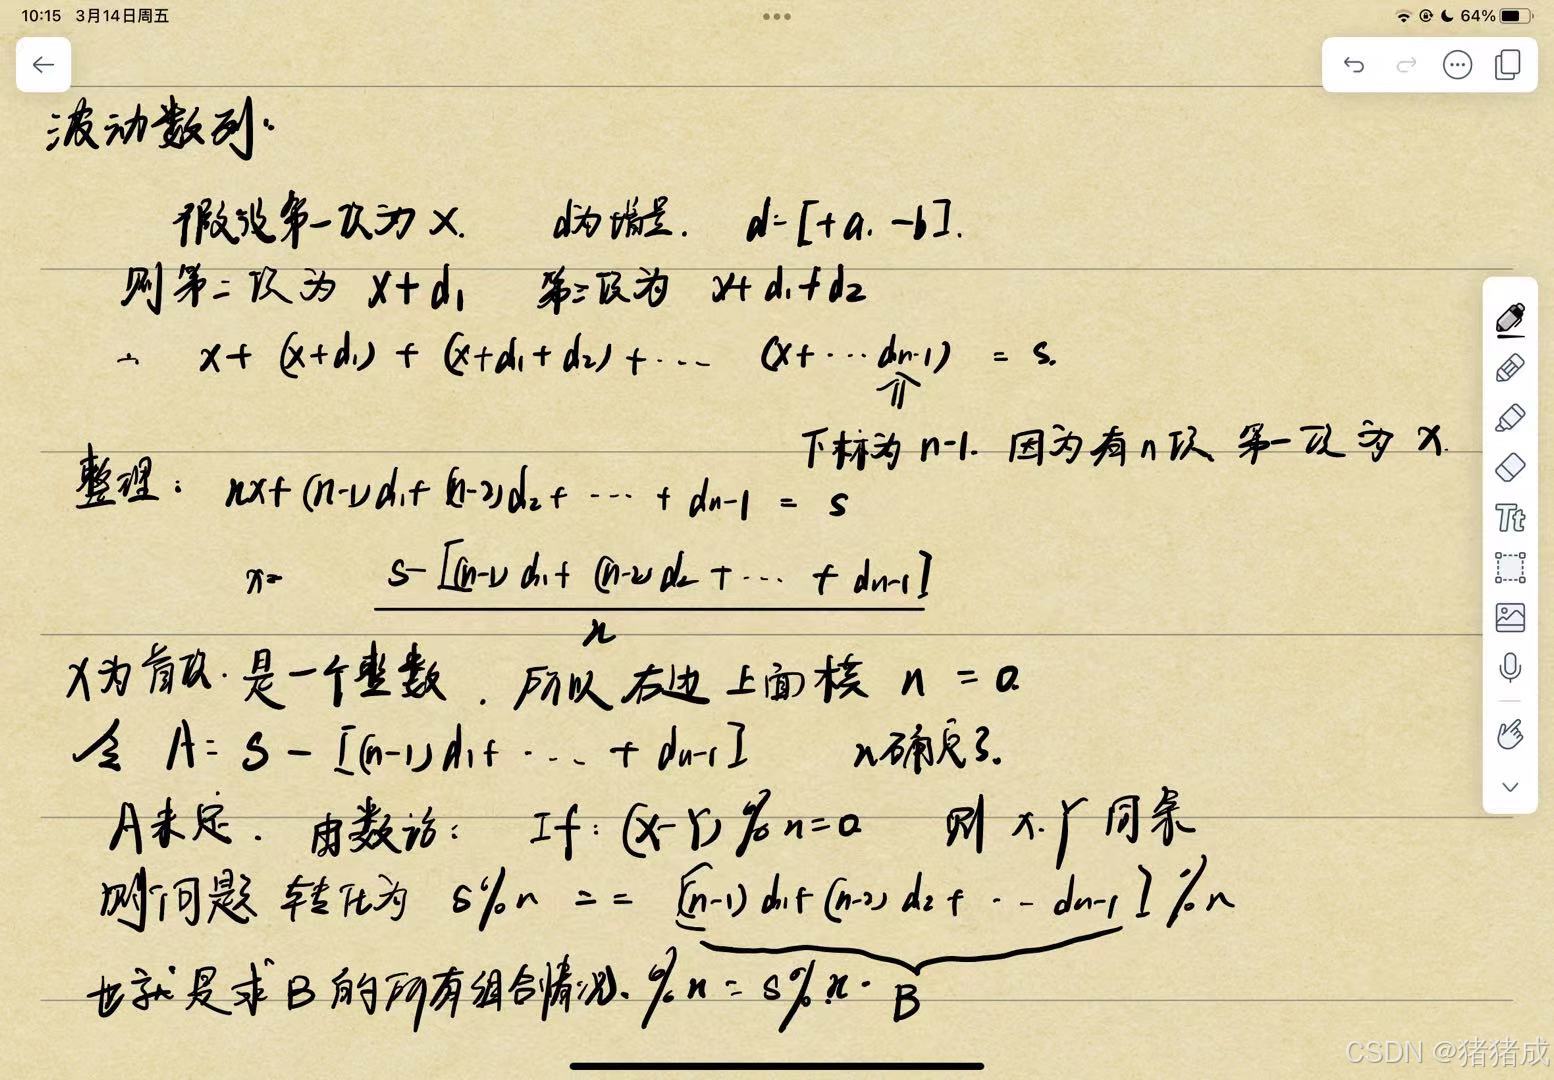 10:15 3月14日周五
64%
波动数列.
假设第一次为 X. d为增量. d=[+a. -b].
则第二次为 X+d1 第三项为 x+d1+d2
∴ x+(x+d1)+(x+d1+d2)+... (x+...dn-1) = s.
下标为 n-1. 因为有n项 第一项为 X.
整理: nx+(n-1)d1+(n-2)d2+...+dn-1 = s
x= s-[(n-1)d1+(n-2)d2+...+dn-1]
n
X为首项.是一个整数.所以右边上面模 n = 0.
令 A= S-[(n-1)d1+...+dn-1] n确定了.
A未定. 由数论: If: (X-Y)%n=0 则 x.y同余
则问题转化为 s%n == [(n-1)d1+(n-2)d2+...dn-1]%n
B
也就是求B的所有组合情况.%n = s%n.
Tt
CSDN @猪猪成